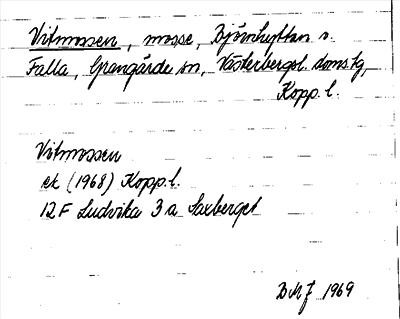 Vitmossen, mosse, Björnhyttan o.
Fælla, Grangärde sn, Västerbergsl. doms.tg,
Kopp. l.
Vitmossen
ek (1968) Kopp. l.
12 F Ludvika 3 a Saxberget
BMJ 1969